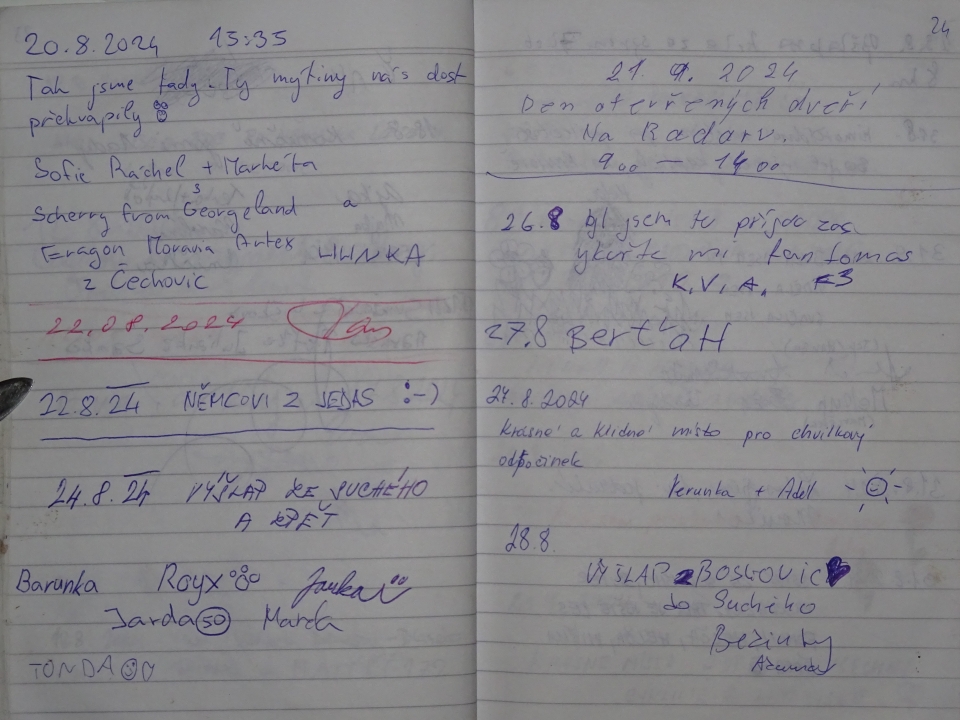 20.8.2024 15:35
Tak jsme tady. Ty mýtiny nás dost
překvapily
Sofie Ráchel + Markéta
s
Scherry from Georgeland a
Eragon Morava Artex
z Čechovic
22.08.2024
22.8.24 NĚMCOVI Z JEDAS :-)
24.8.24 VÝŠLAP ZE SUCHÉHO
A ZPĚT
Barunka Royx
Jarda 50 Marta
TONDA
24
21. 9. 2024
Den otevřených dveří
Na Radaru.
9 00 — 14 00
26.8 byl jsem tu přijdu zas
fantomas
K.V.A.
27.8
27.8.2024
Krásné a klidné místo pro chvilkový
odpočinek
Verunka + Adél
28.8.
VÝŠLAP z BOSKOVIC
do Suchého